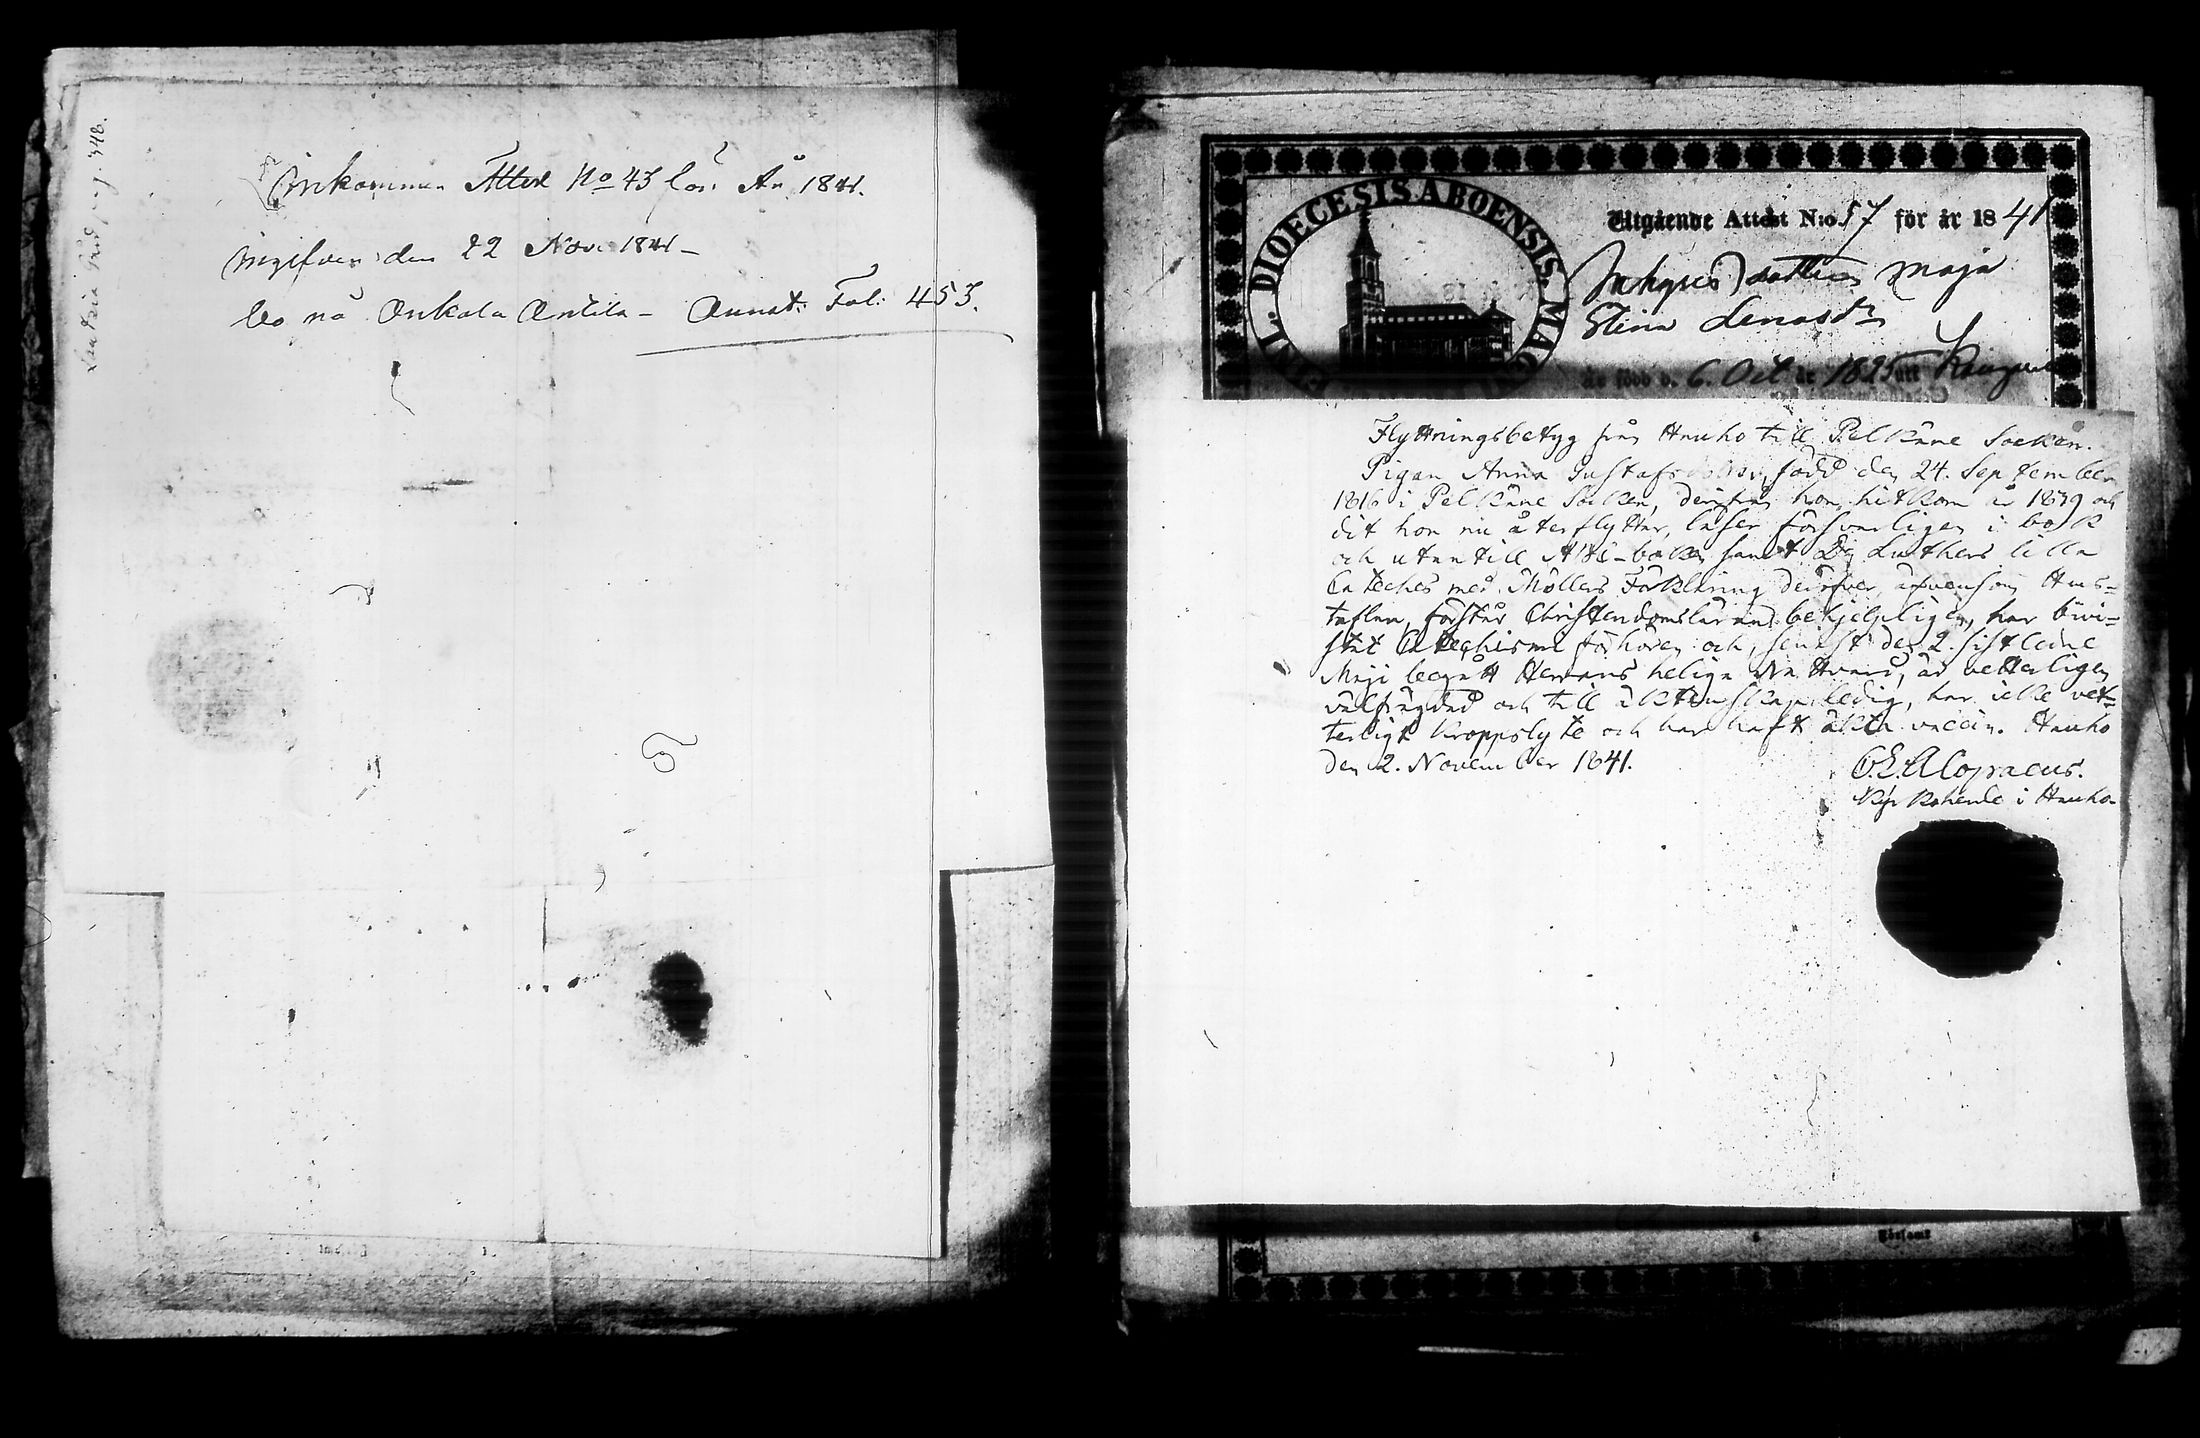 Inkommen Attest No 43 för År 1841.
Ingifven den 22 Nov. 1841 –
bo på Onkala Anttila – Annot. Fol: 453.
pag. 348.
DIOECESIS ABOENSIS. MAGN
FINL.
Utgående Attest N:o 57 för år 1841
Inhyses dottren Maja
Stina Lenasdr
är född d. 6. Oct år 1825 uti
Flyttningsbetyg från Hauho till Pelkäne Socken.
Pigan Anna Gustafsdotter, född den 24. September
1816 i Pelkäne Socken, derifrån hon hitkom år 1839 och
dit hon nu återflyttar, läser försvarligen i bok
och utantill ABC-boken samt Dr Luthers lilla
Cateches med Möllers Förklaring deröfver, äfvensom Hus-
taflan, förstår Christendomsläran behjelpligen, har bivi-
stat Catechismi förhören och, senast den 2. sistledne
Maji begått Herrans helige Nattvard, är vetterligen
välfrägdad och till äktenskap ledig, har icke vet-
terligt kroppslyte och har haft äkta vaccin. Hauho
den 2. November 1841.
C. E. Alopaeus.
Kyrkoherde i Hauho.
Församl